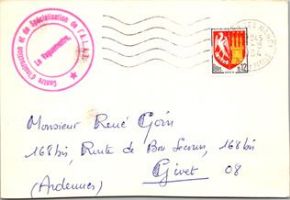 Centre d'Instruction et de Spécialisation de l'A.L.A.T.
Le Vaguemestre
0,12
Monsieur René Goin
168 bis, Route de Bon Secours, 168 bis
Givet 08
(Ardennes)